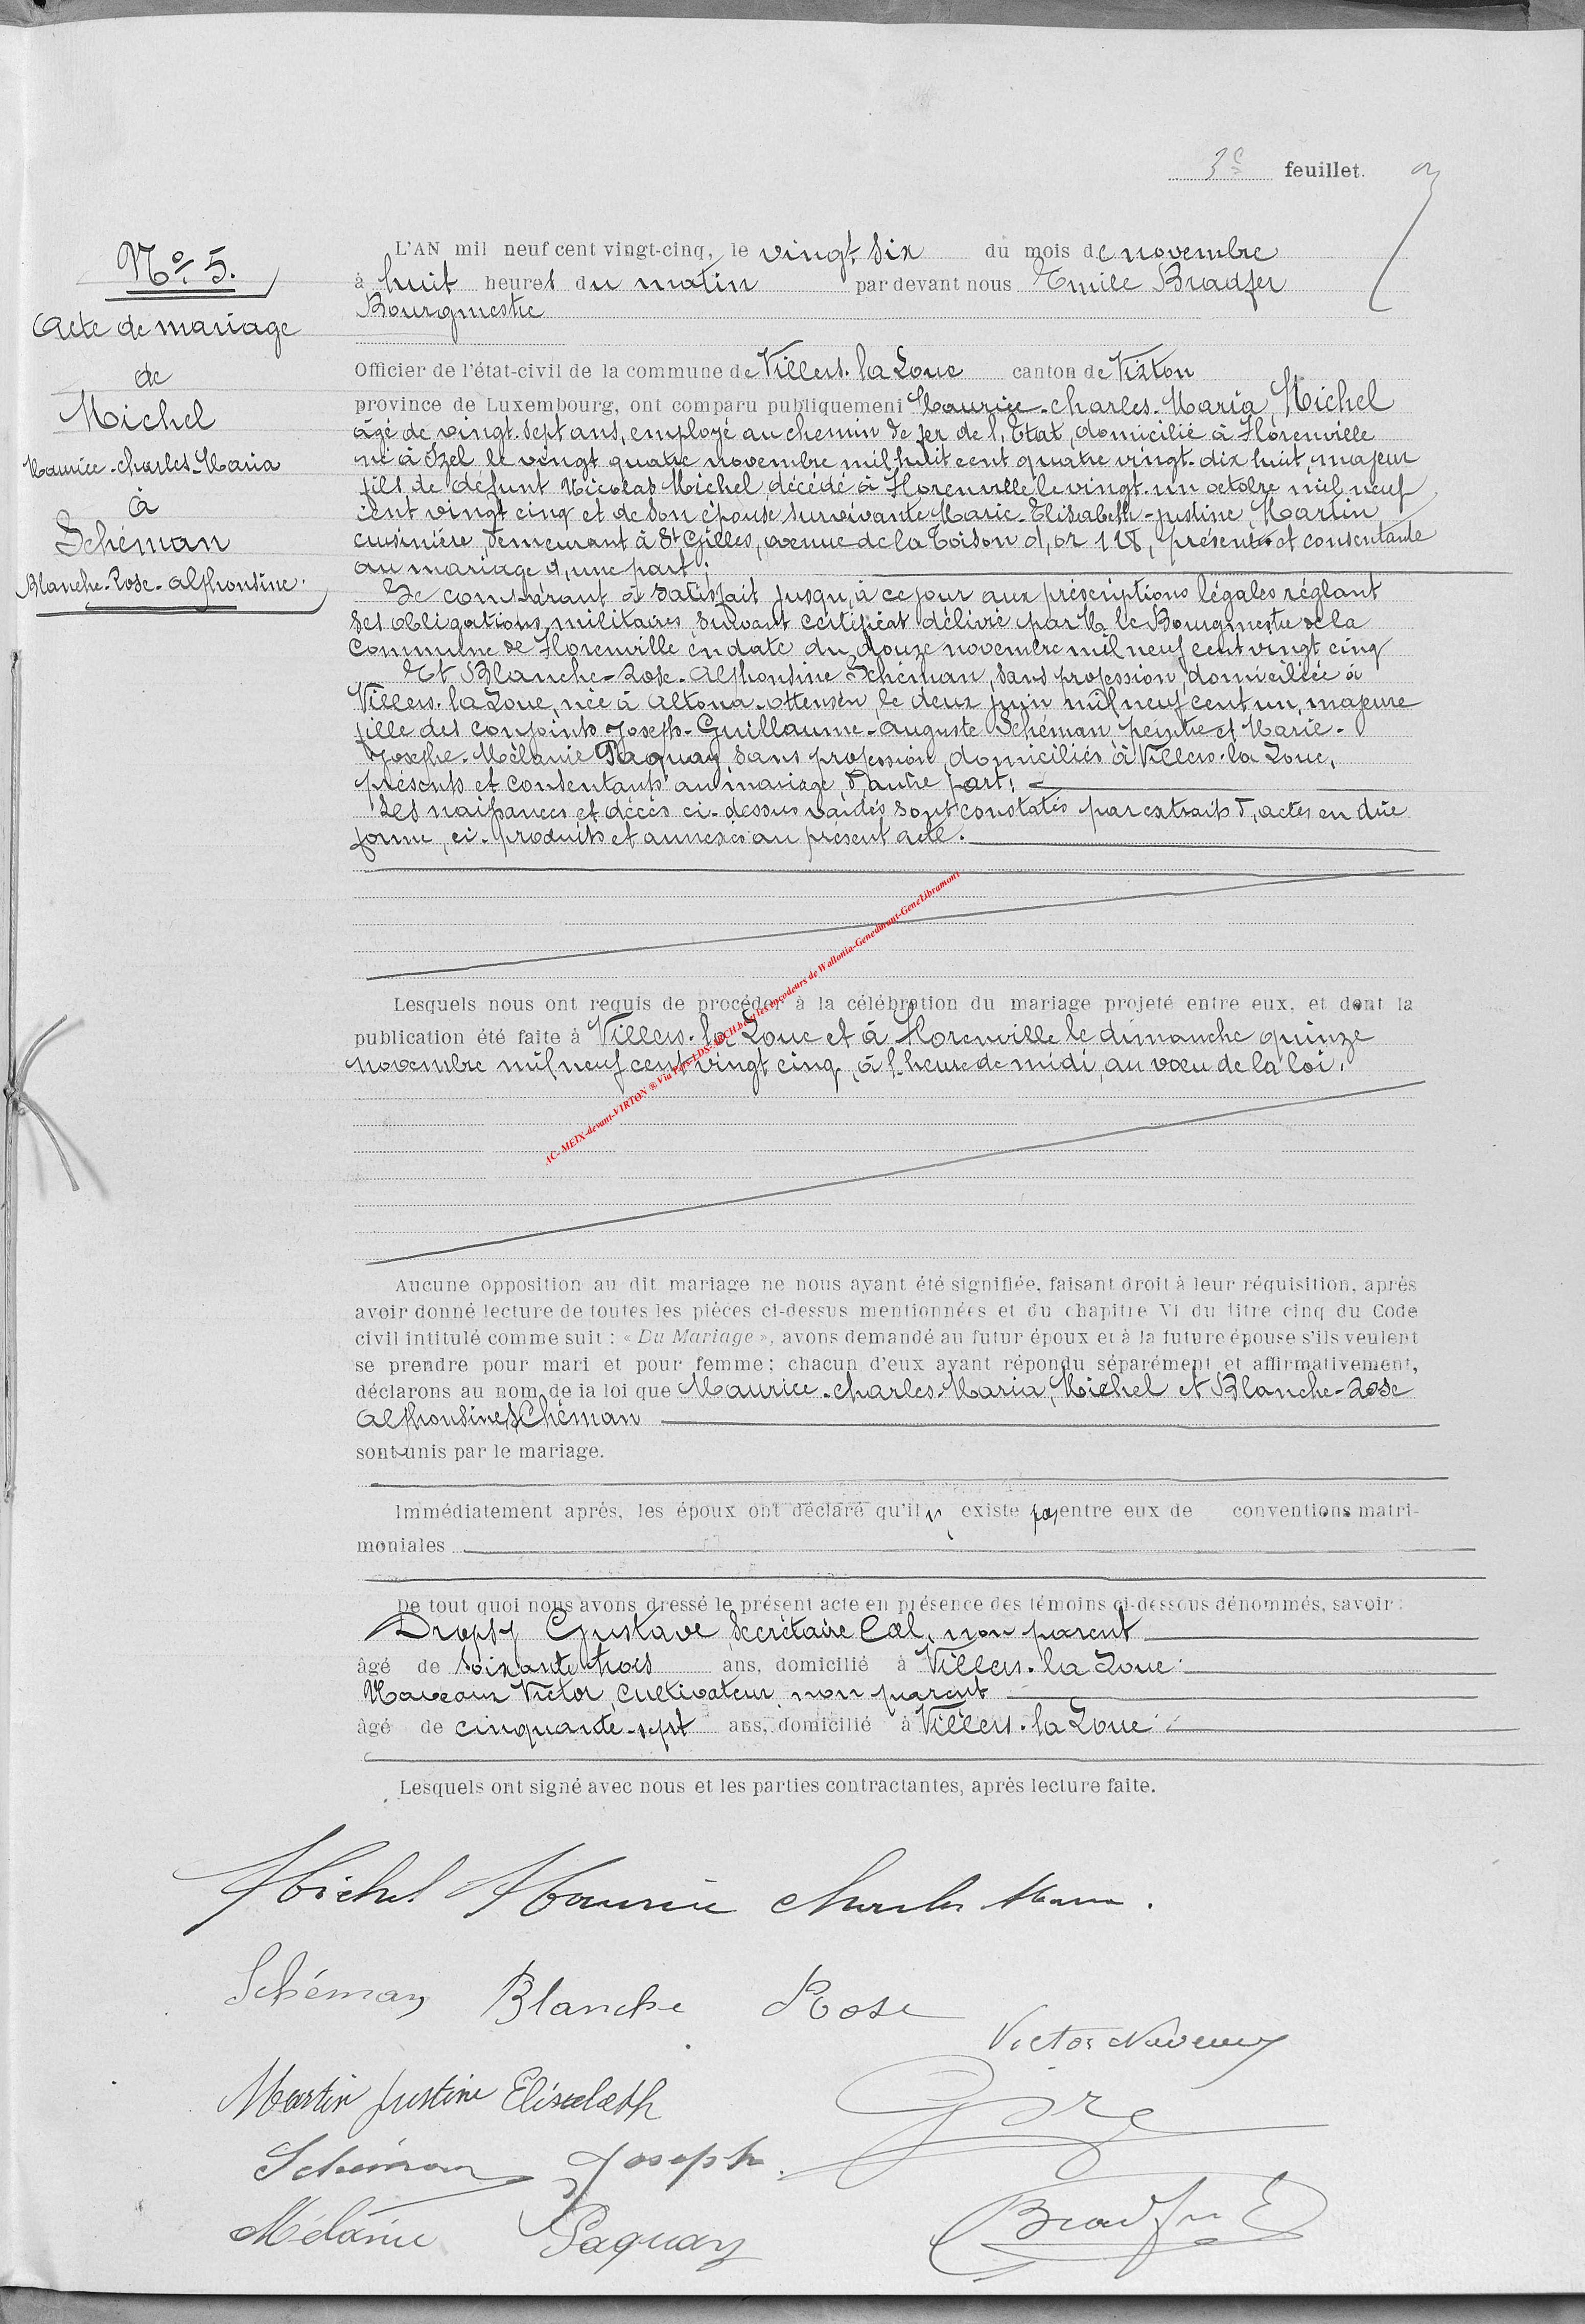 3e feuillet. 3
No 5.
Acte de mariage
de
Michel
Maurice-Charles-Maria
à
Schéman
Blanche-Rose-Alphonsine.
L'AN mil neuf cent vingt-cinq, le vingt six du mois de novembre
à huit heures du matin par devant nous Emile Bradfer
Bourgmestre
Officier de l'état-civil de la commune de Villers-la-Loue canton de Virton
province de Luxembourg, ont comparu publiquement Maurice-Charles-Maria, Michel
âgé de vingt-sept ans, employé au chemin de fer de l'Etat, domicilié à Florenville
né à Izel le vingt quatre novembre mil huit cent quatre vingt-dix huit, majeur
fils de défunt Nicolas Michel, décédé à Florenville le vingt-un octobre mil neuf
cent vingt cinq et de son épouse survivante Marie-Elisabeth-Justine, Martin
cuisinière, demeurant à St Gilles, avenue de la Toison d'or 118, présente et consentante
au mariage d'une part;
Le comparant a satisfait jusqu'à ce jour aux préscriptions légales réglant
ses obligations militaires suivant certificat délivré par M le Bourgmestre de la
commune de Florenville en date du douze novembre mil neuf cent vingt cinq
Et Blanche-Rose-Alphonsine Schéman, sans profession, domiciliée à
Villers-la-Loue, née à Altona-Ottensen, le deux juin mil neuf cent un, majeure
fille des conjoints Joseph-Guillaume-Auguste Schéman peintre et Marie-
Josephe-Mélanie Paquay sans profession, domiciliés à Villers-la-Loue,
présents et consentants au mariage, d'autre part;
Les naissances et décès ci-dessus sont constatés par extraits d'actes en dûe
forme, ci-produits et annexés au présent acte.
Lesquels nous ont requis de procéder à la célébration du mariage projeté entre eux, et dont la
publication été faite à Villers-la-Loue et à Florenville le dimanche quinze
novembre mil neuf cent vingt cinq, à l'heure de midi, au vœu de la loi.
AC-MEIX-devant-VIRTON ® Via les encodeurs de Wallonia-Genedinant-GeneLibramont
Aucune opposition au dit mariage ne nous ayant été signifiée, faisant droit à leur réquisition, après
avoir donné lecture de toutes les pièces ci-dessus mentionnées et du chapitre VI du titre cinq du Code
civil intitulé comme suit : « Du Mariage », avons demandé au futur époux et à la future épouse s'ils veulent
se prendre pour mari et pour femme; chacun d'eux ayant répondu séparément et affirmativement,
déclarons au nom de la loi que Maurice-Charles-Maria, Michel et Blanche-Rose
Alphonsine Schéman
sont unis par le mariage.
Immédiatement après, les époux ont déclaré qu'il n'existe pas entre eux de conventions matri-
moniales
De tout quoi nous avons dressé le présent acte en présence des témoins ci-dessous dénommés, savoir :
Dropsy Gustave Secrétaire Cal, non parent
âgé de soixante trois ans, domicilié à Villers-la-Loue.
Naveaux Victor, cultivateur, non parent
âgé de cinquante-sept ans, domicilié à Villers-la-Loue.
Lesquels ont signé avec nous et les parties contractantes, après lecture faite.
Michel Maurice Charles Maria.
Schéman Blanche Rose
Victor Naveaux
Martin Justine Elisabeth
Schéman Joseph.
Mélanie Paquay
Bradfer E